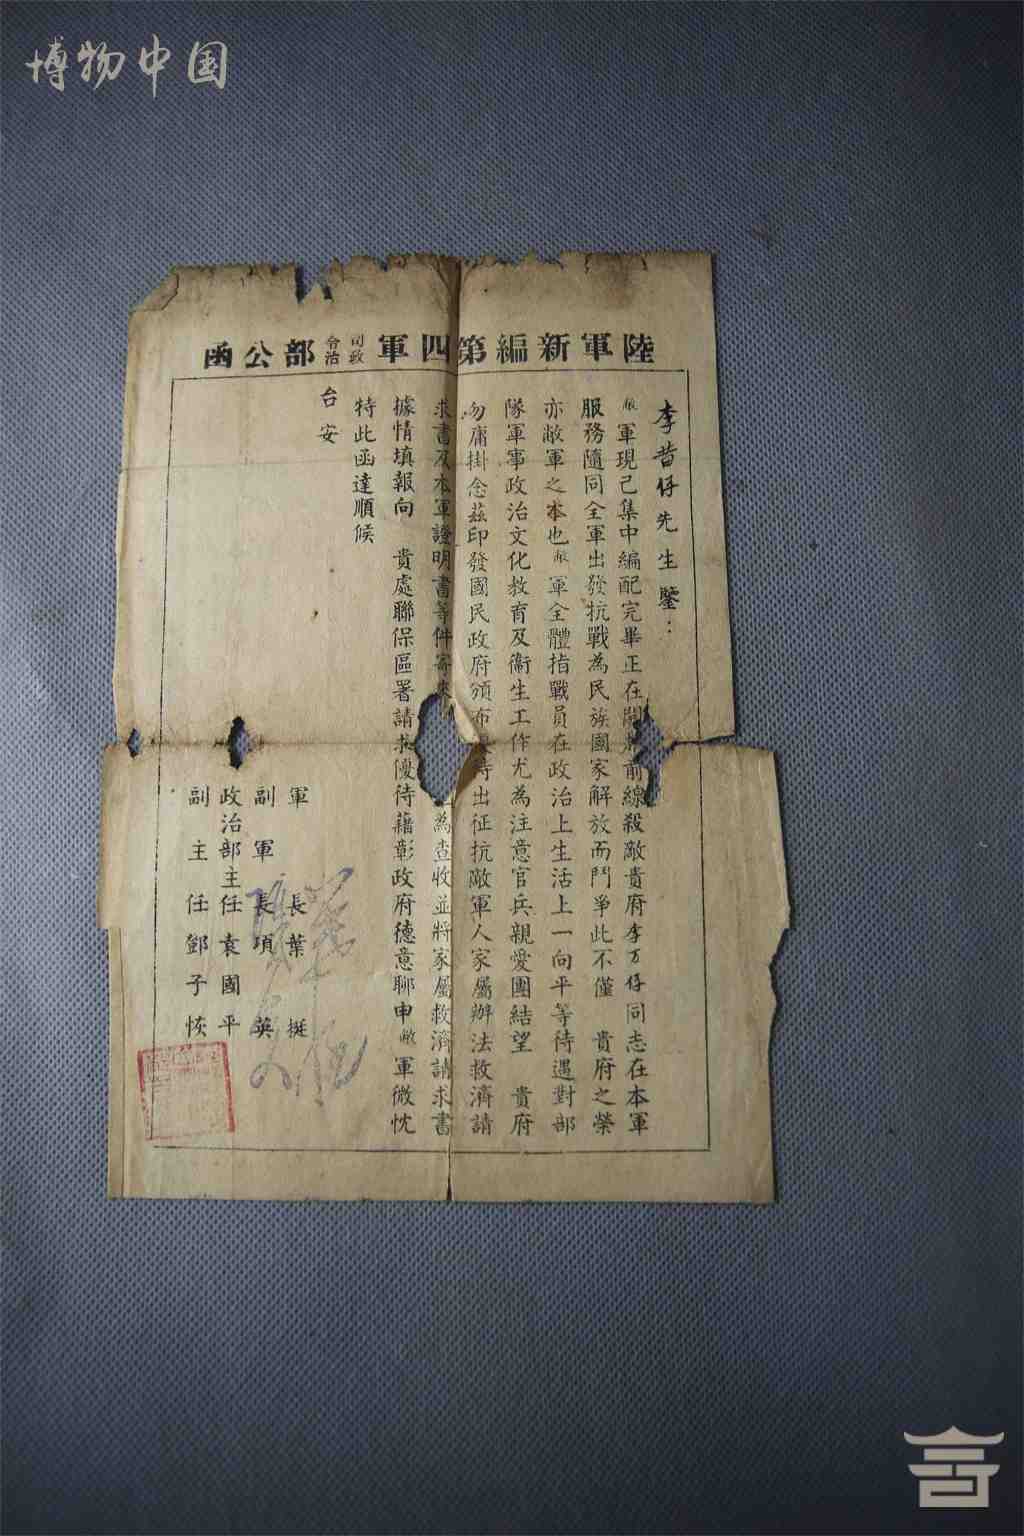 博物中国
陸軍新編第四軍司令政治部公函
李昔仔先生鑒：
敝軍現已集中編配完畢正在開前線殺敵貴府李万仔同志在本軍
服務隨同全軍出發抗戰為民族國家解放而鬥爭此不僅 貴府之榮
亦敝軍之本也敝軍全體指戰員在政治上生活上一向平等待遇對部
隊軍事政治文化教育及衞生工作尤為注意官兵親愛團結望 貴府
勿庸掛念茲印發國民政府頒布待出征抗敵軍人家屬辦法救濟請
求書及本軍證明書等件寄為查收並將家屬救濟請求書
據情填報向 貴處聯保區署請求優待藉彰政府德意聊申敝軍微忱
特此函達順候
台安
軍長葉挺
副軍長項英
政治部主任袁國平
副主任鄧子恢